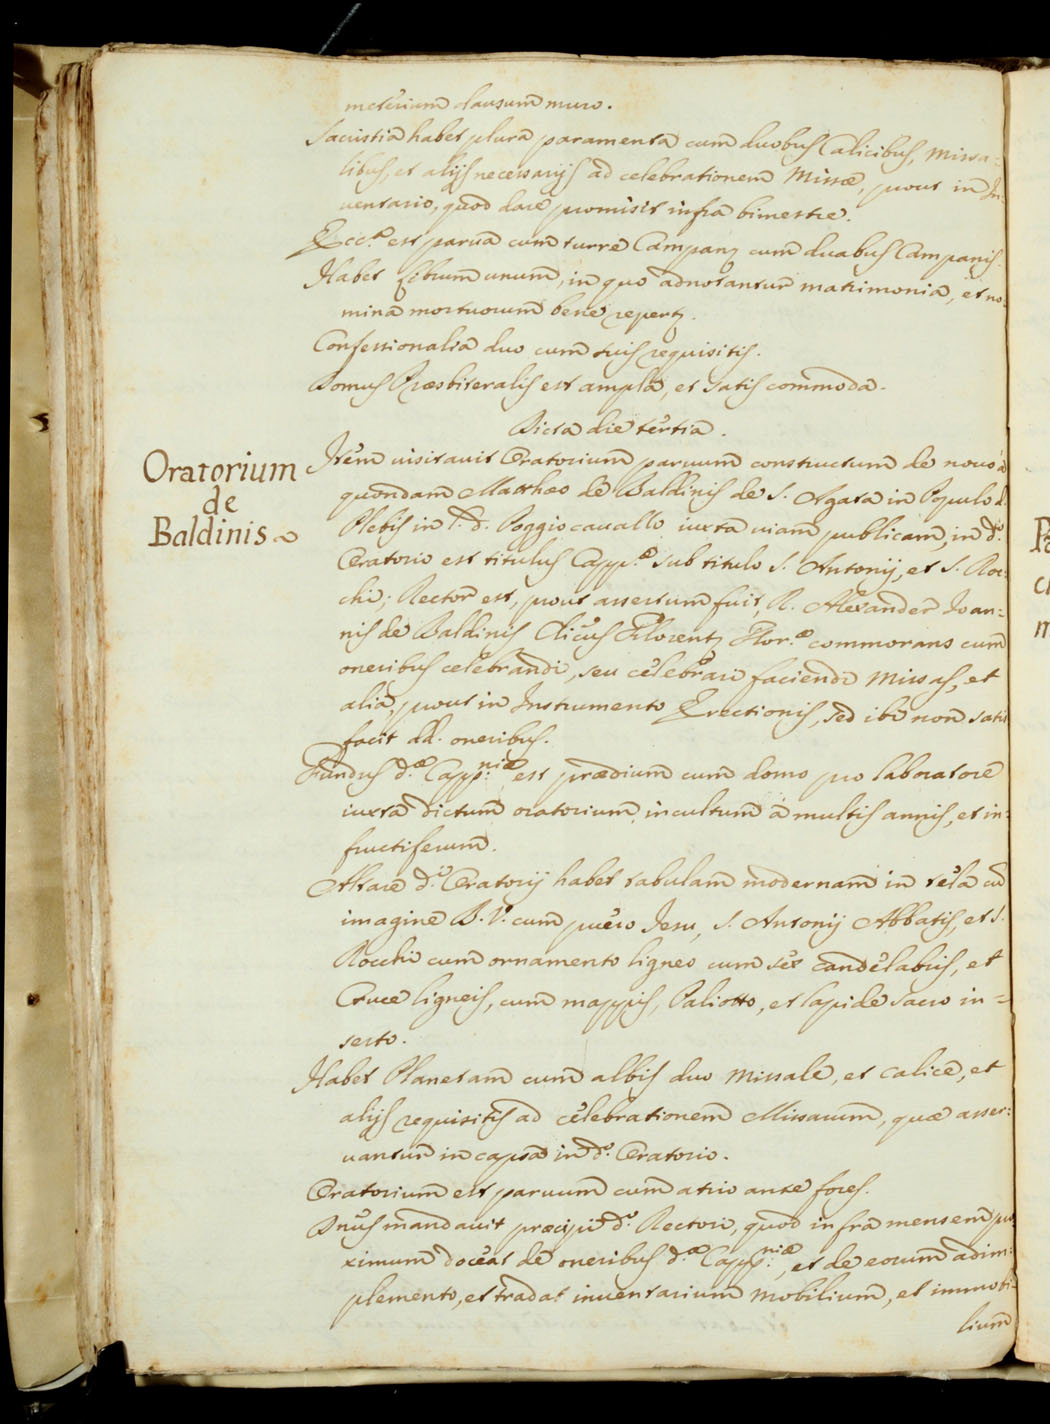 meterium clausum muro.
Sacristia habet plura paramenta cum duobus Calicibus, Missa=
libus, et alijs necessarijs ad celebrationem Missæ, prout in In=
ventario, quod dare promisit infra bimestre.
Ecc.ª est parva cum turre Campanę cum duabus Campanis.
Habet librum unum, in quo adnotantur matrimonia, et no=
mina mortuorum bene repertę.
Confessionalia duo cum suis requisitis.
Domus Præsbiteralis est ampla, et satis commoda.
Dicta die tertia.
Oratorium
de
Baldinis
Item visitavit Oratorium parvum constructum de novo à
quondam Matthæo de Baldinis de S. Agata in Populo d.
Plebis in l. d. Poggio cavallo iuxta viam publicam, in d.º
Oratorio est titulus Capp.æ sub titulo S. Antonij, et S. Roc=
chi; Rector est, prout assertum fuit, R. Alexander Ioan=
nis de Baldinis Clicus Florentę Flor.æ commorans cum
oneribus celebrandi, seu celebrari faciendi Missas, et
alia, prout in Instrumento Erectionis, sed ibi non satis
facit dd. oneribus.
Fundus d.æ Capp.niæ est prædium cum domo pro laboratore
iuxta dictum oratorium incultum à multis annis, et in=
fructiferum.
Altare d.i Oratorij habet tabulam modernam in tela cū
imagine B. V. cum puero Iesu, S. Antonij Abbatis, et S.
Rocchi cum ornamento ligneo cum sex candelabris, et
Cruce ligneis, cum mappis, Paliotto, et lapide sacro in=
serto.
Habet Planetam cum albis duo Missale, et calice, et
alijs requisitis ad celebrationem Missarum, quæ asser=
vantur in capsa in d.º Oratorio.
Oratorium est parvum cum atrio ante fores.
Dnus mandavit præcipi d.º Rectori, quod infra mensem pro
ximum doceat de oneribus d.æ Capp.niæ, et de eorum adim=
plemento, et tradat inventarium mobilium, et immobi=
lium